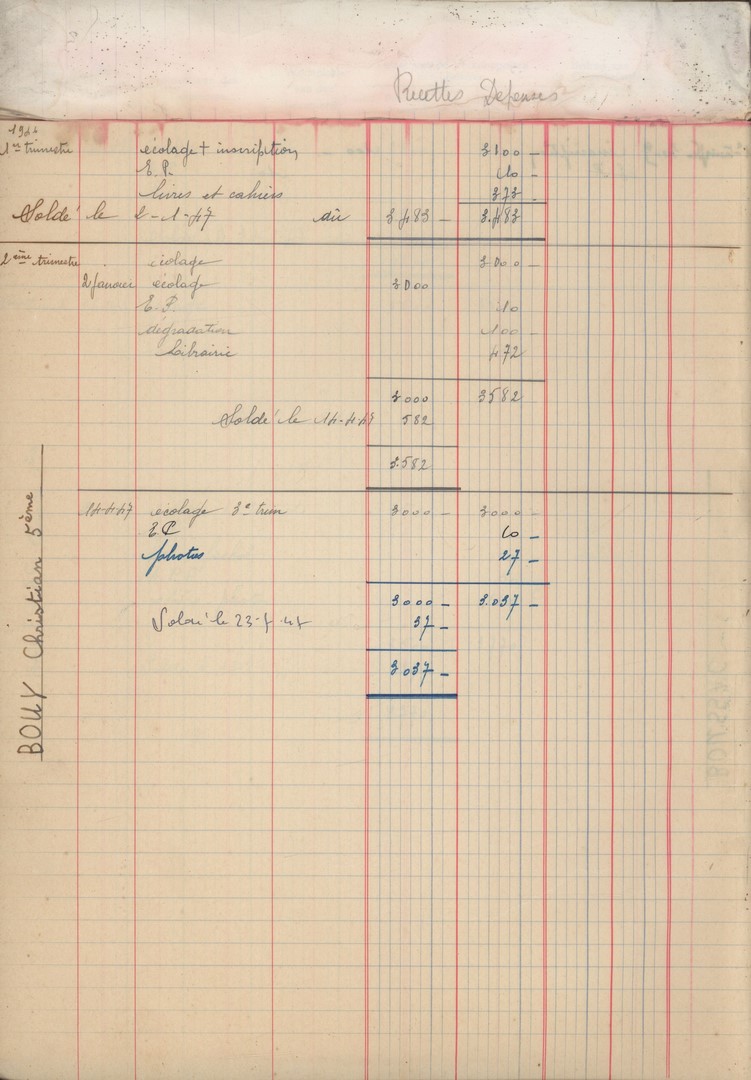 Recettes Dépenses
1946
1er trimestre écolage + inscription 3100 -
E. P. 10 -
livres et cahiers 373
Soldé le 2-1-47 dû 3483 - 3.483
2ème trimestre écolage 3000 -
2 janvier écolage 3000
E. P. 10
dégradation 100 -
Librairie 472
3000 3582
Soldé le 14-4-47 582
3.582
14-4-47 écolage 3e trim 3000 - 3000 -
EP 10 -
photos 27 -
3000 - 3.037 -
Soldé le 23-7-47 37 -
3037 -
BOUY Christian 5ème